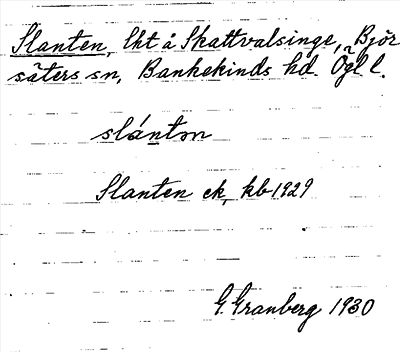 Slanten, lht å Skattvalsinge, Björ
säters sn, Bankekinds hd. Ögl l.
slántɷn
Slanten ek, kb 1929
G. Granberg 1930